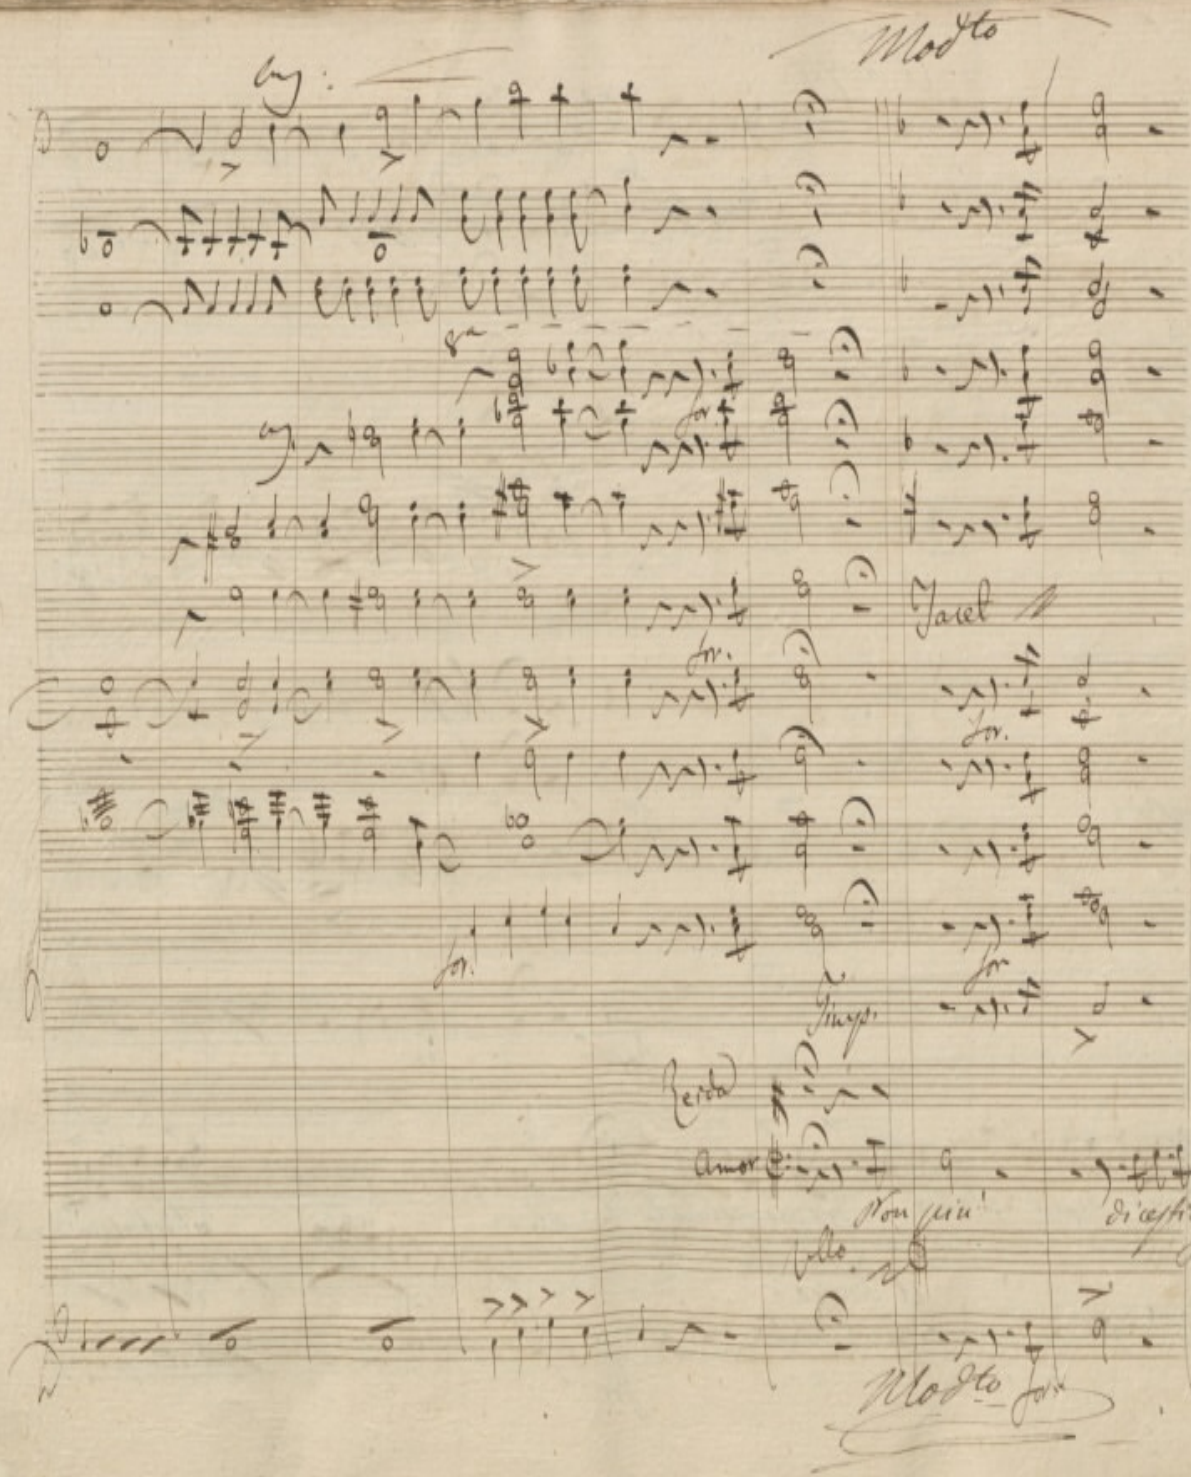 Mod.to
8a
for.
Tacet
for.
for.
for.
for
Timp.
Zeida
Amor
Non più!
dicesti
Mod.to for.